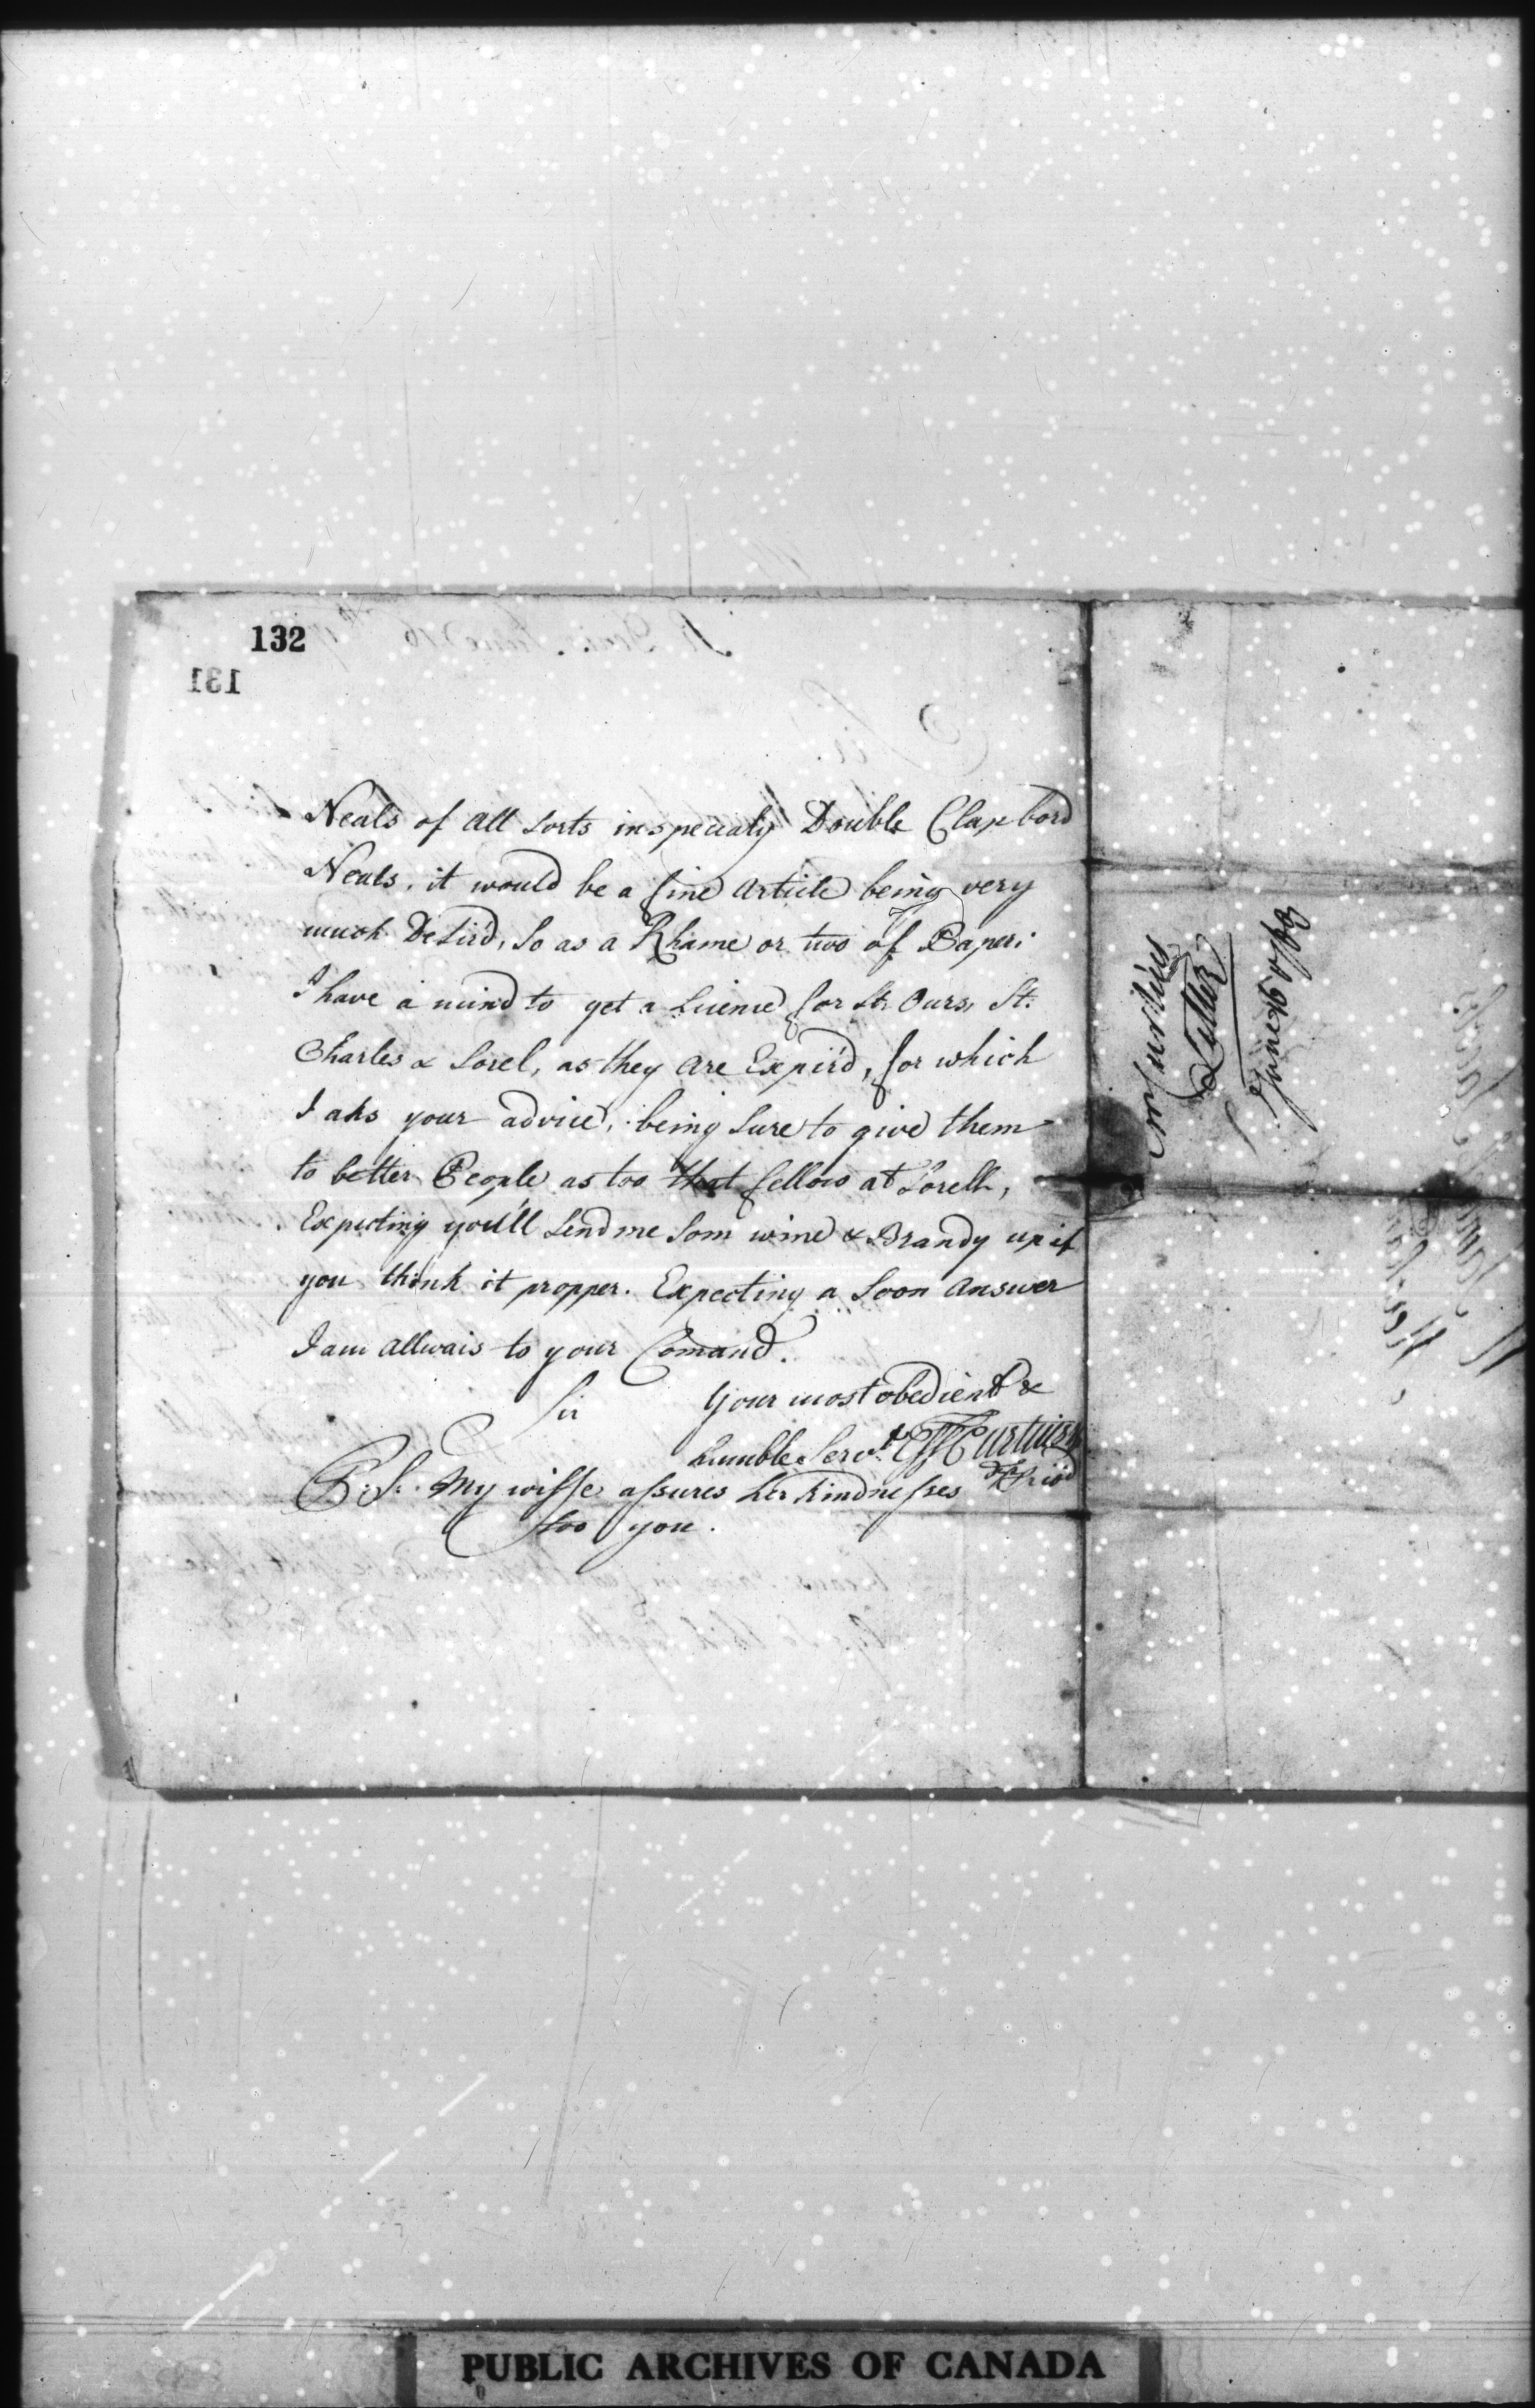 132
131
Neals of all sorts inspecialy Double Clapbord
Neals, it would be a fine article being very
much Desird, So as a Rhame or two of Paper:
I have a mind to get a Licence for St. Ours, St.
Charles & Sorel, as they are Expir'd, for which
I aks your advice, being Sure to give them
to better People as too that fellow at Sorell,
Expecting you'll Send me Som wine & Brandy up if
you think it propper. Expecting a Soon Answer
I am allwais to your Comand.
Sir Your most obedient &
humble Servt
P.S. My wiffe assures her kindnesses
too you.
Curtius
Letter
June 16 1769
PUBLIC ARCHIVES OF CANADA